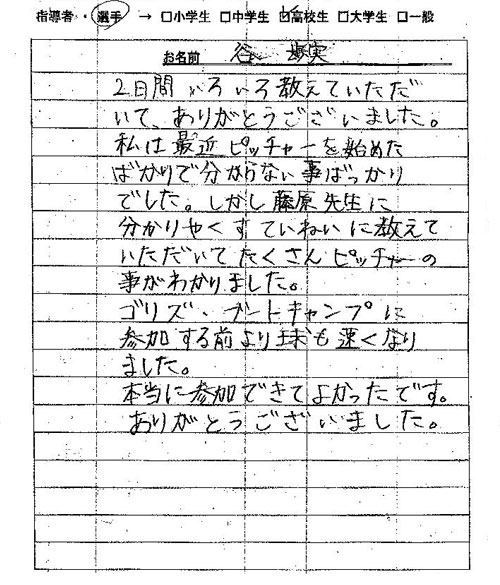 指導者・選手 → □小学生 □中学生 ☑高校生 □大学生 □一般
お名前 谷 実
2日間いろいろ教えていただ
いて、ありがとうございました。
私は最近ピッチャーを始めた
ばかりで分からない事ばっかり
でした。しかし藤原先生に
分かりやくすていねいに教えて
いただいてたくさんピッチャーの
事がわかりました。
ゴリズ・ブートキャンプに
参加する前より球も速くなり
ました。
本当に参加できてよかったです。
ありがとうございました。